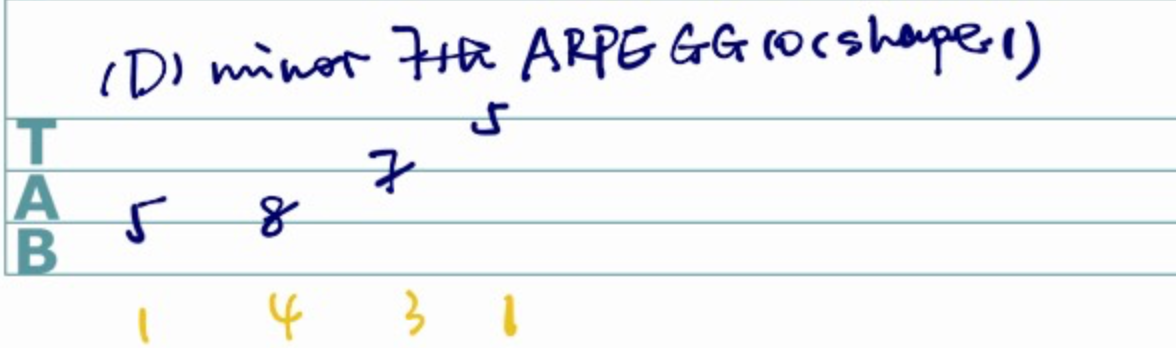 (D) minor 7th ARPEGGIO (shape 1)
5
T
7
A 5 8
B
1 4 3 1